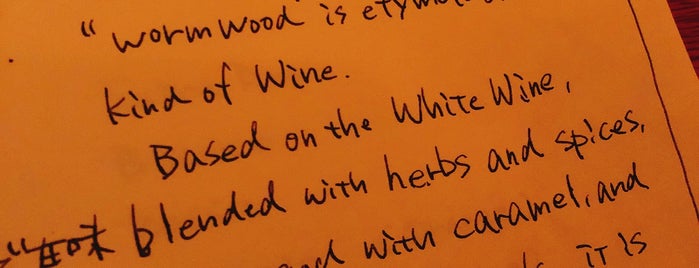 "wormwood is etymolo
kind of Wine.
Based on the White Wine,
blended with herbs and spices,
with caramel, and
it is